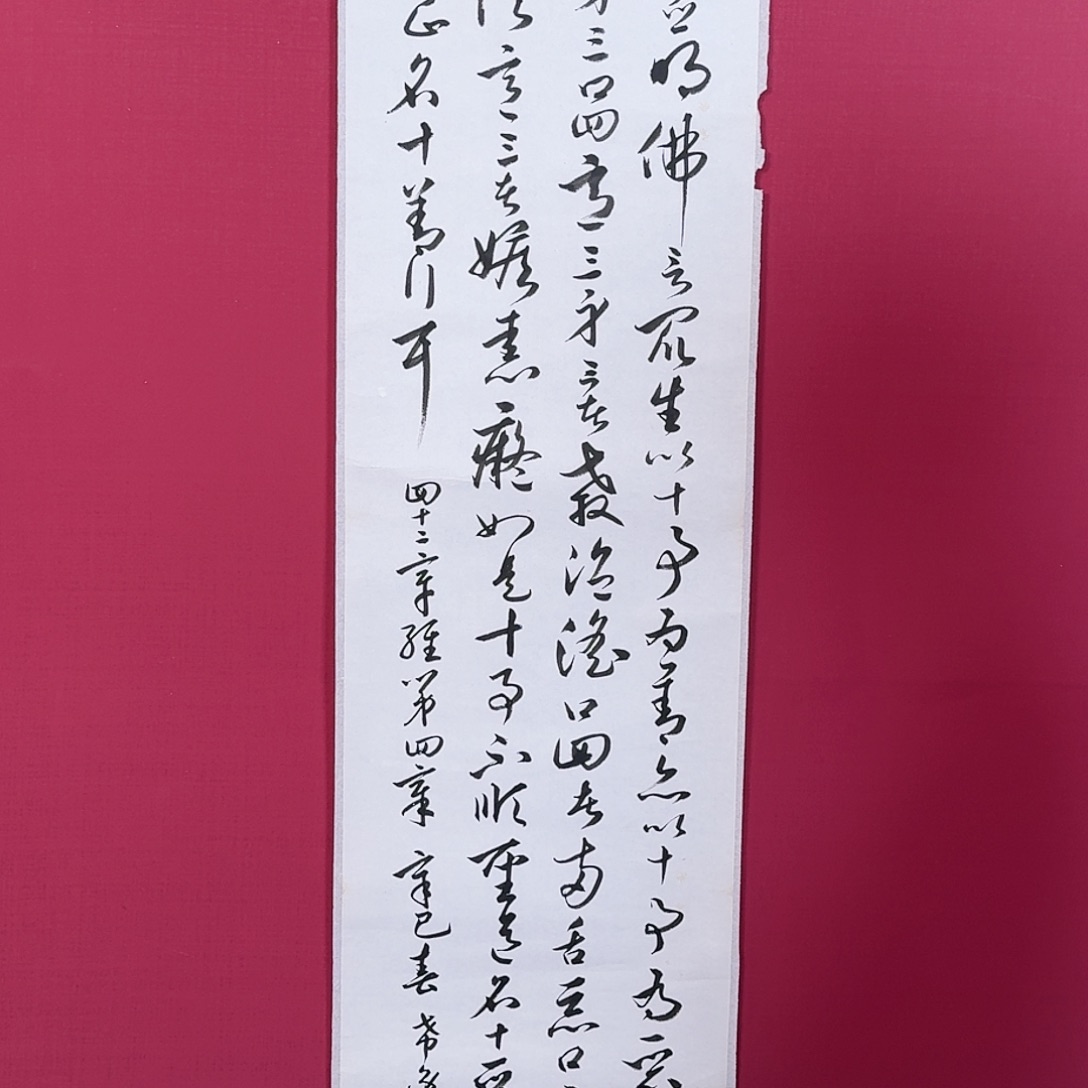 並明佛言眾生以十事為善亦以十事為惡
身三口四意三身三者殺盜婬口四者兩舌惡口
語意三者嫉恚癡如是十事不順聖道名十惡
止名十善行耳 四十二章經第四章 辛巳春 希